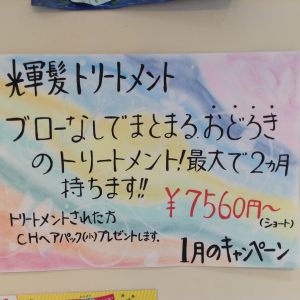 輝髪トリートメント
ブローなしでまとまる、おどろき
のトリートメント!最大で2ヵ月
持ちます!!
¥7560円〜
(ショート)
トリートメントされた方
CHヘアパック(小)プレゼントします。
1月のキャンペーン